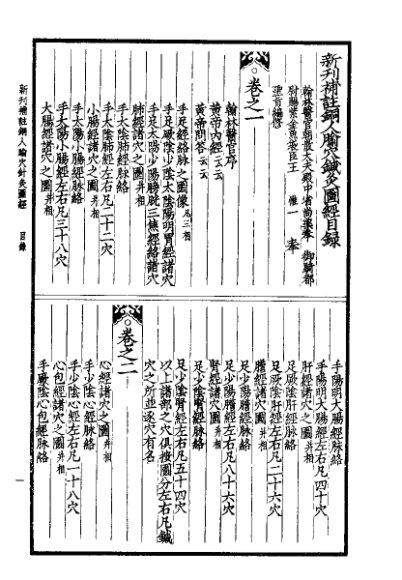 新刊補註銅人腧穴鍼灸圖經目錄
翰林醫官朝散大夫殿中省尚藥奉御騎都
尉賜紫金魚袋臣王惟一奉
聖旨編修
卷之一
翰林醫官序
黃帝內經云云
黃帝問答云云
手足經絡脉之圖像凡三相
手足厥陰少陰太陰陽明胃經諸穴
手足太陽少陽膀胱三焦經絡諸穴
肺經諸穴之圖并相
手太陰肺經脉絡
手太陰肺經左右凡二十二穴
小腸經諸穴之圖并相
手太陽小腸經脉絡
手太陽小腸經左右凡三十八穴
大腸經諸穴之圖并相
手陽明大腸經脉絡
手陽明大腸經左右凡四十穴
肝經諸穴之圖并相
足厥陰肝經脉絡
足厥陰肝經左右凡二十六穴
膽經諸穴圖并相
足少陽膽經脉絡
足少陽膽經左右凡八十六穴
腎經諸穴圖并相
足少陰腎經脉絡
足少陰腎經左右凡五十四穴
以上諸部之穴俱按圖分左右凡鍼
穴之所逆逐穴有名
卷之二
心經諸穴之圖并相
手少陰心經脉絡
手少陰心經左右凡一十八穴
心包經諸穴之圖并相
手厥陰心包經脉絡
新刊補註銅人腧穴針灸圖經 目錄
一